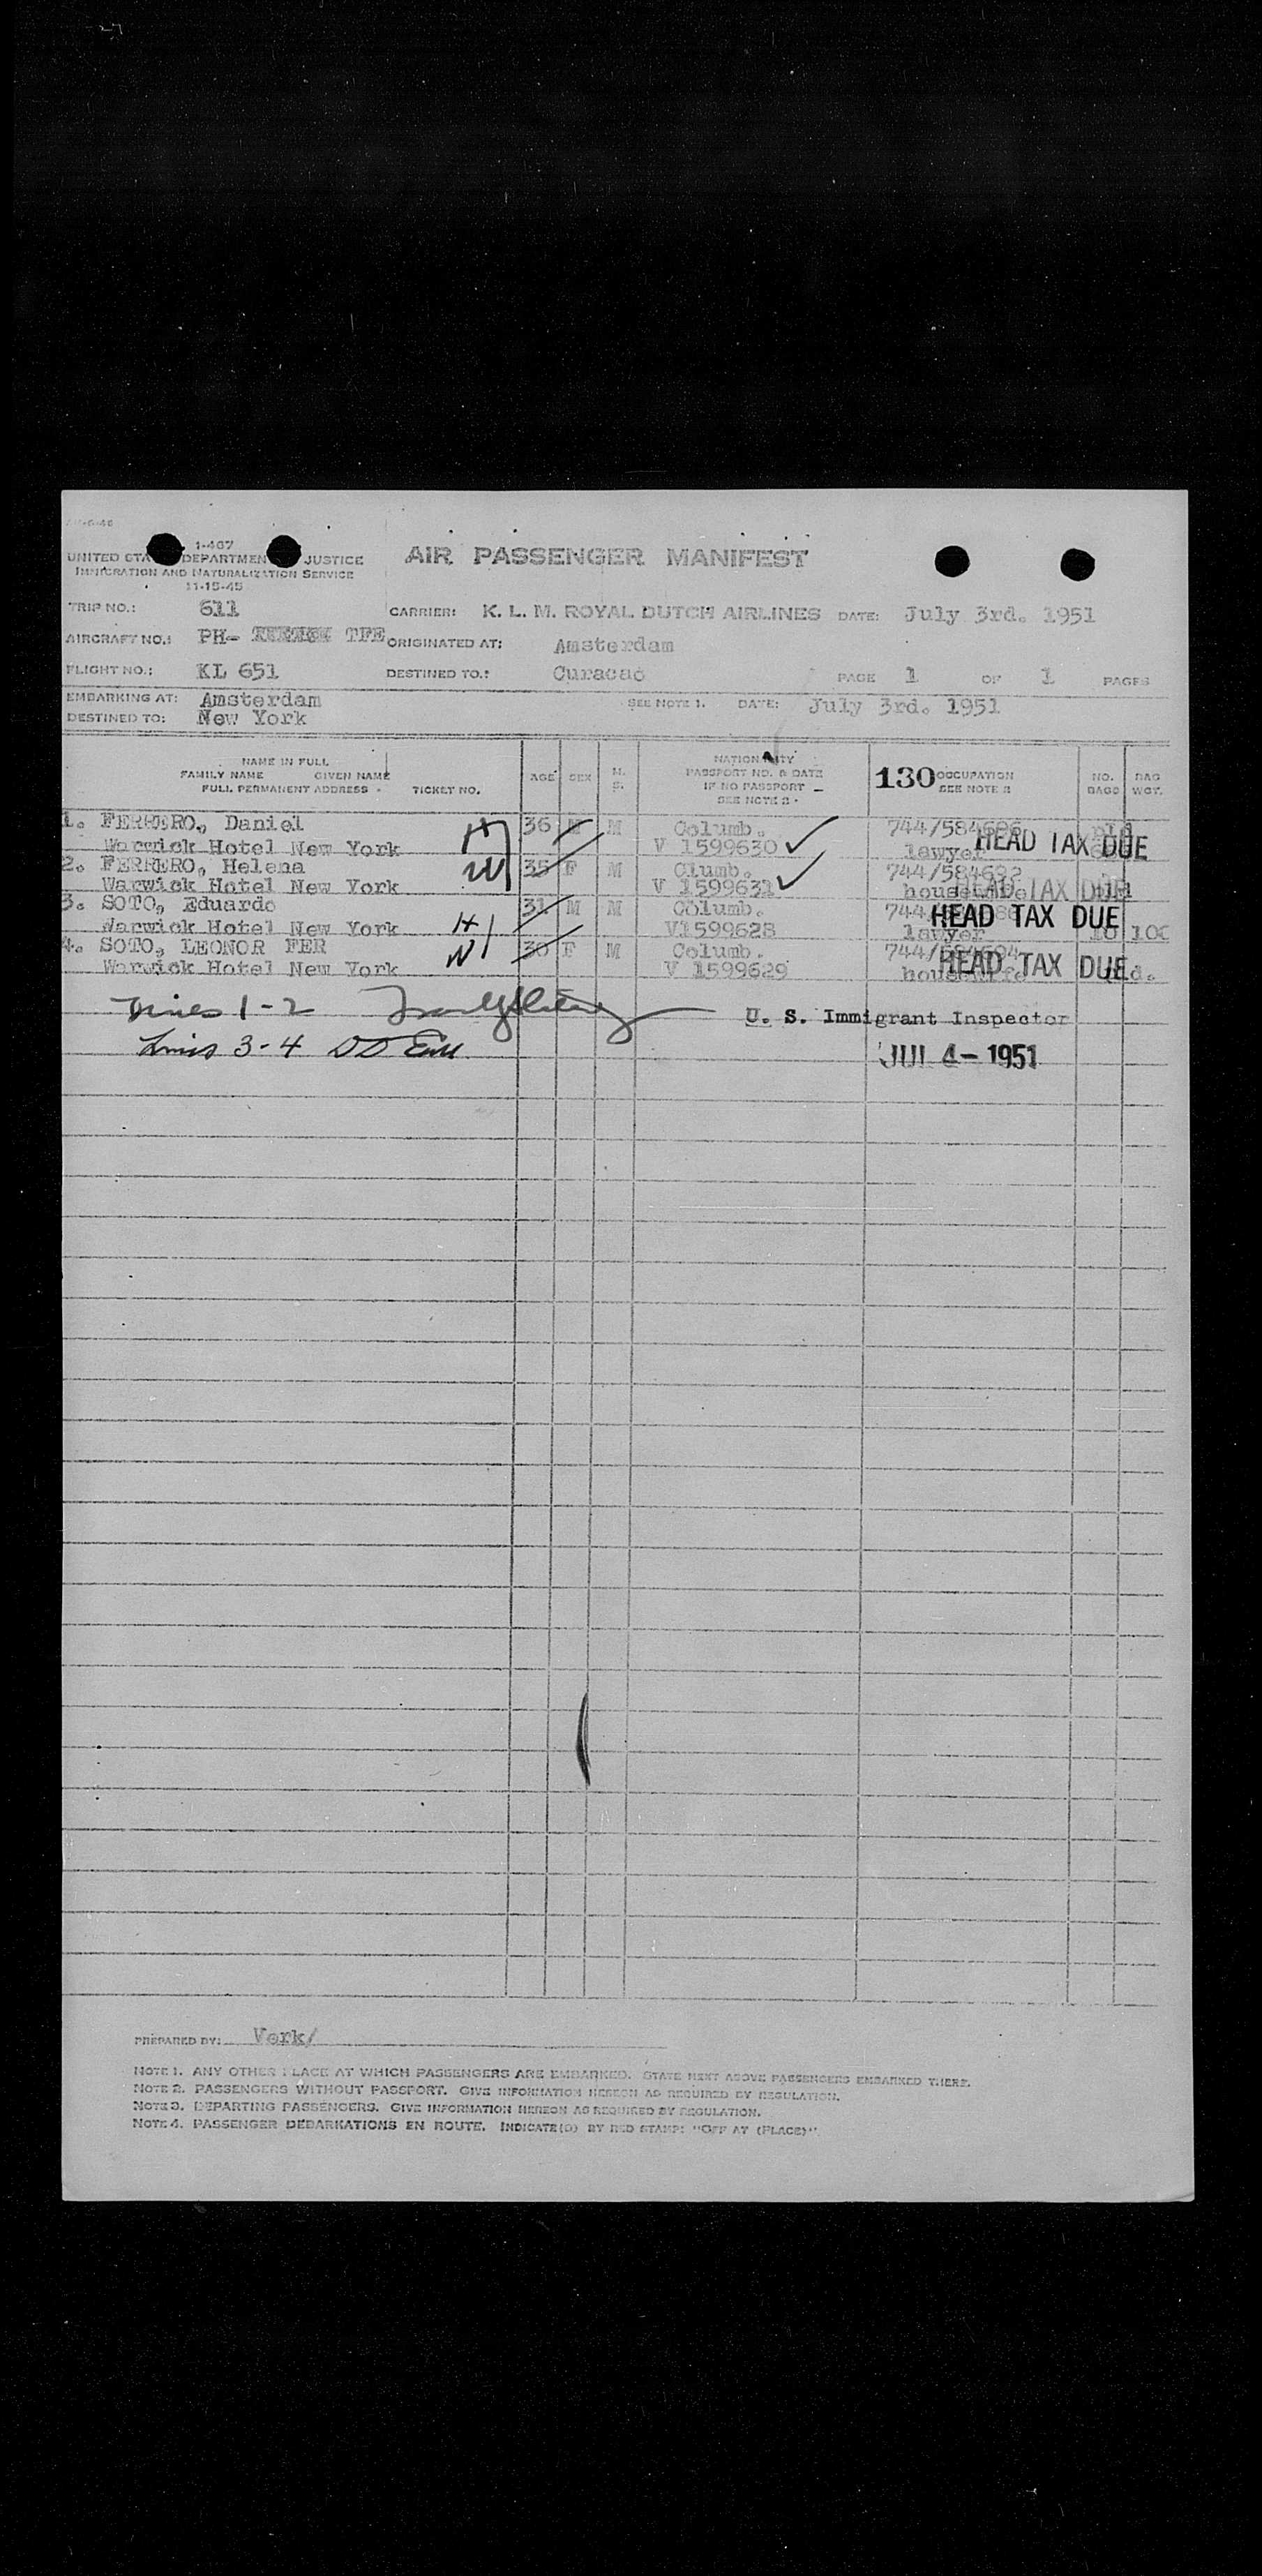 1-467
UNITED STA DEPARTMEN JUSTICE
IMMIGRATION AND NATURALIZATION SERVICE
11-15-45
AIR PASSENGER MANIFEST
TRIP NO.: 611 CARRIER: K. L. M. ROYAL DUTCH AIRLINES DATE: July 3rd. 1951
AIRCRAFT NO.: PH- TFE ORIGINATED AT: Amsterdam
FLIGHT NO.: KL 651 DESTINED TO.: Curacao PAGE 1 OF 1 PAGES
EMBARKING AT: Amsterdam SEE NOTE 1. DATE: July 3rd. 1951
DESTINED TO: New York
NAME IN FULL
FAMILY NAME GIVEN NAME
FULL PERMANENT ADDRESS - TICKET NO.
AGE
SEX
M.
S.
NATIONALITY
PASSPORT NO. & DATE
IF NO PASSPORT -
SEE NOTE 2 -
130 OCCUPATION
SEE NOTE 3
NO.
BAGS
BAG
WGT.
1. FERRERO, Daniel 36 M M Columb. 744/584696
Warwick Hotel New York H V 1599630 lawyer HEAD TAX DUE
2. FERRERO, Helena W 35 F M Clumb. 744/584692
Warwick Hotel New York V 1599631 housewife HEAD TAX DUE
3. SOTO, Eduardo 31 M M Columb. 744/
Warwick Hotel New York H V1599628 lawyer HEAD TAX DUE 10 100
4. SOTO, LEONOR FER W 30 F M Columb. 744/584694
Warwick Hotel New York V 1599629 housewife HEAD TAX DUE
Lines 1-2 U. S. Immigrant Inspector
Lines 3-4 JUL 4- 1951
PREPARED BY: Vork/
NOTE 1. ANY OTHER PLACE AT WHICH PASSENGERS ARE EMBARKED. STATE NEXT ABOVE PASSENGERS EMBARKED THERE.
NOTE 2. PASSENGERS WITHOUT PASSPORT. GIVE INFORMATION HEREON AS REQUIRED BY REGULATION.
NOTE 3. DEPARTING PASSENGERS. GIVE INFORMATION HEREON AS REQUIRED BY REGULATION.
NOTE 4. PASSENGER DEBARKATIONS EN ROUTE. INDICATE(D) BY RED STAMP: "OFF AT (PLACE)".